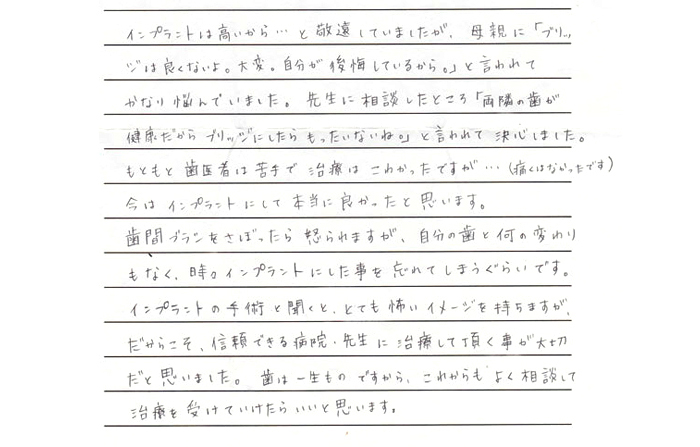 インプラントは高いから…と敬遠していましたが、母親に「ブリッ
ジは良くないよ。大変。自分が後悔しているから。」と言われて
かなり悩んでいました。先生に相談したところ「両隣の歯が
健康だからブリッジにしたらもったいないね。」と言われて決心しました。
もともと歯医者は苦手で治療はこわかったですが…(痛くはなかったです)
今はインプラントにして本当に良かったと思います。
歯間ブラシをさぼったら怒られますが、自分の歯と何の変わり
もなく、時々インプラントにした事を忘れてしまうぐらいです。
インプラントの手術と聞くと、とても怖いイメージを持ちますが、
だからこそ、信頼できる病院・先生に治療して頂く事が大切
だと思いました。歯は一生ものですから、これからもよく相談して
治療を受けていけたらいいと思います。